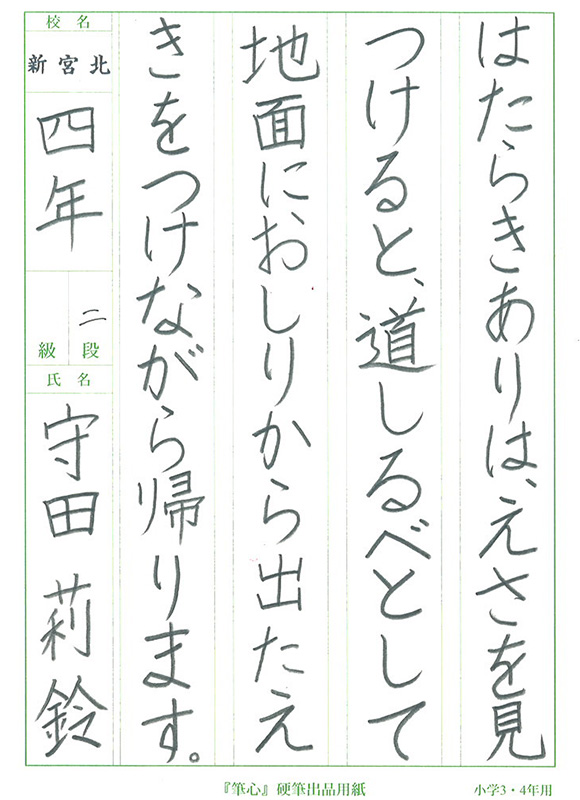 はたらきありは、えさを見
つけると、道しるべとして
地面におしりから出たえ
きをつけながら帰ります。
校名
新宮北
四年
二
級段
氏名
守田莉鈴
『筆心』硬筆出品用紙
小学3・4年用